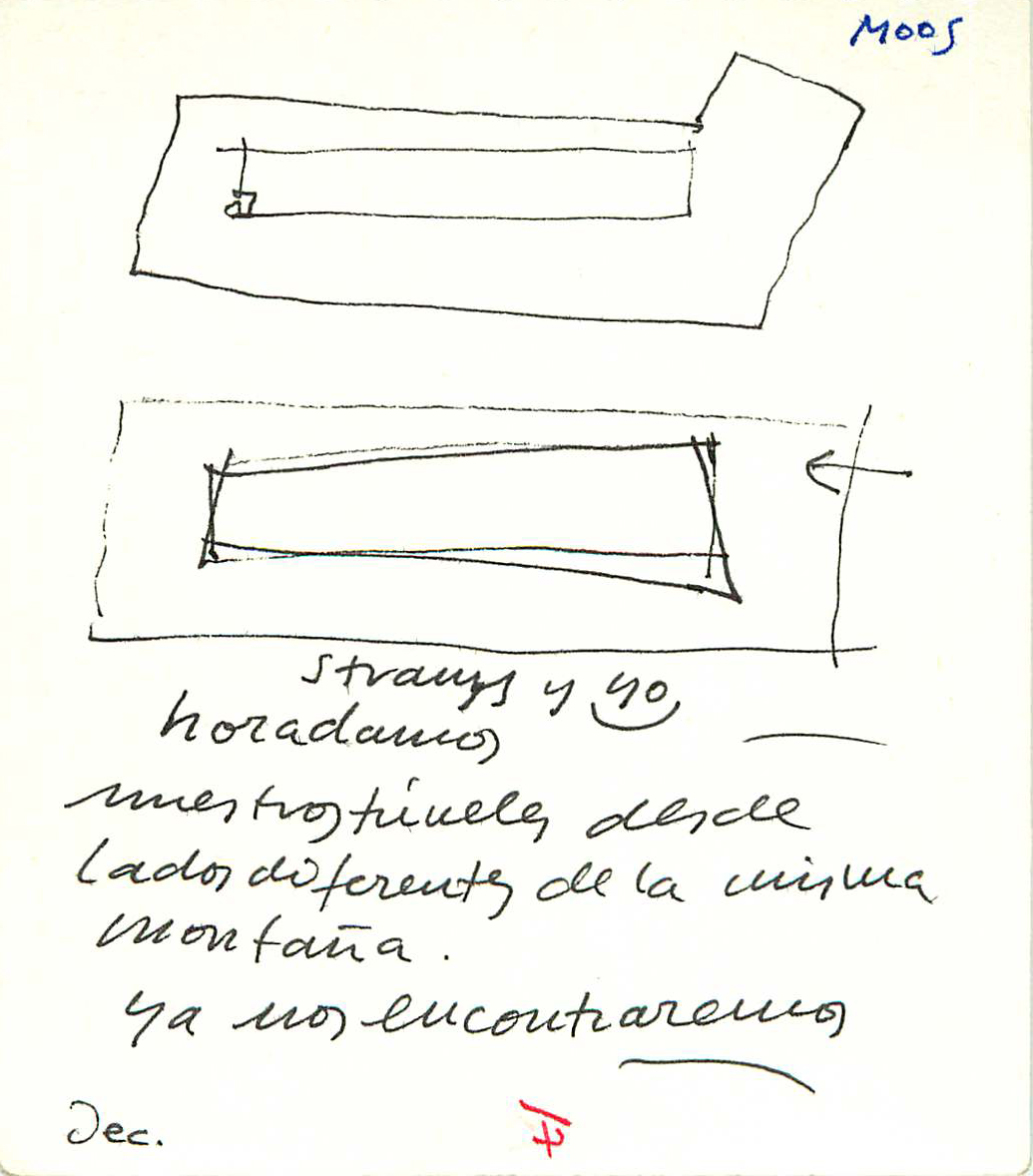 Moos
Strauss y yo
horadamos
nuestros túneles desde
lados diferentes de la misma
montaña.
ya nos encontraremos
Dec.